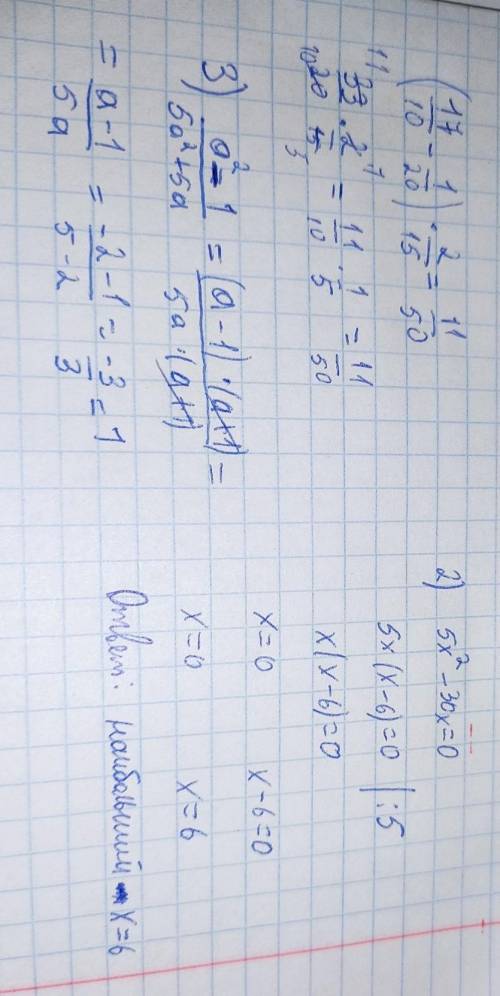 (17/10 - 1/20) · 2/15 = 11/50
11 33 · 2 1 / 10 20 15 5 = 11/10 · 1/5 = 11/50
3) a² - 1 / 5a² + 5a = (a - 1) · (a + 1) / 5a · (a + 1) =
= a - 1 / 5a = -2 - 1 / 5 - 2 = -3/3 = 1
2) 5x² - 30x = 0
5x(x - 6) = 0 | : 5
x(x - 6) = 0
x = 0 x - 6 = 0
x = 0 x = 6
Ответ: наибольший x = 6